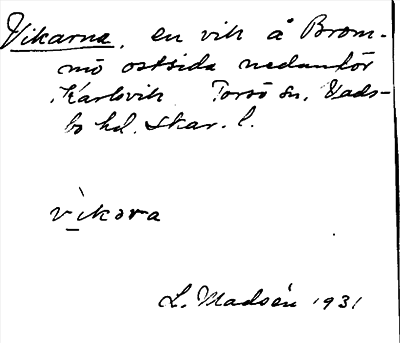 Vikarna, en vik å Brom-
mö ostsida nedanför
Karlsvik Torsö sn. Vads-
bo hd. Skar. l.
vìkəra
L. Madsén 1931